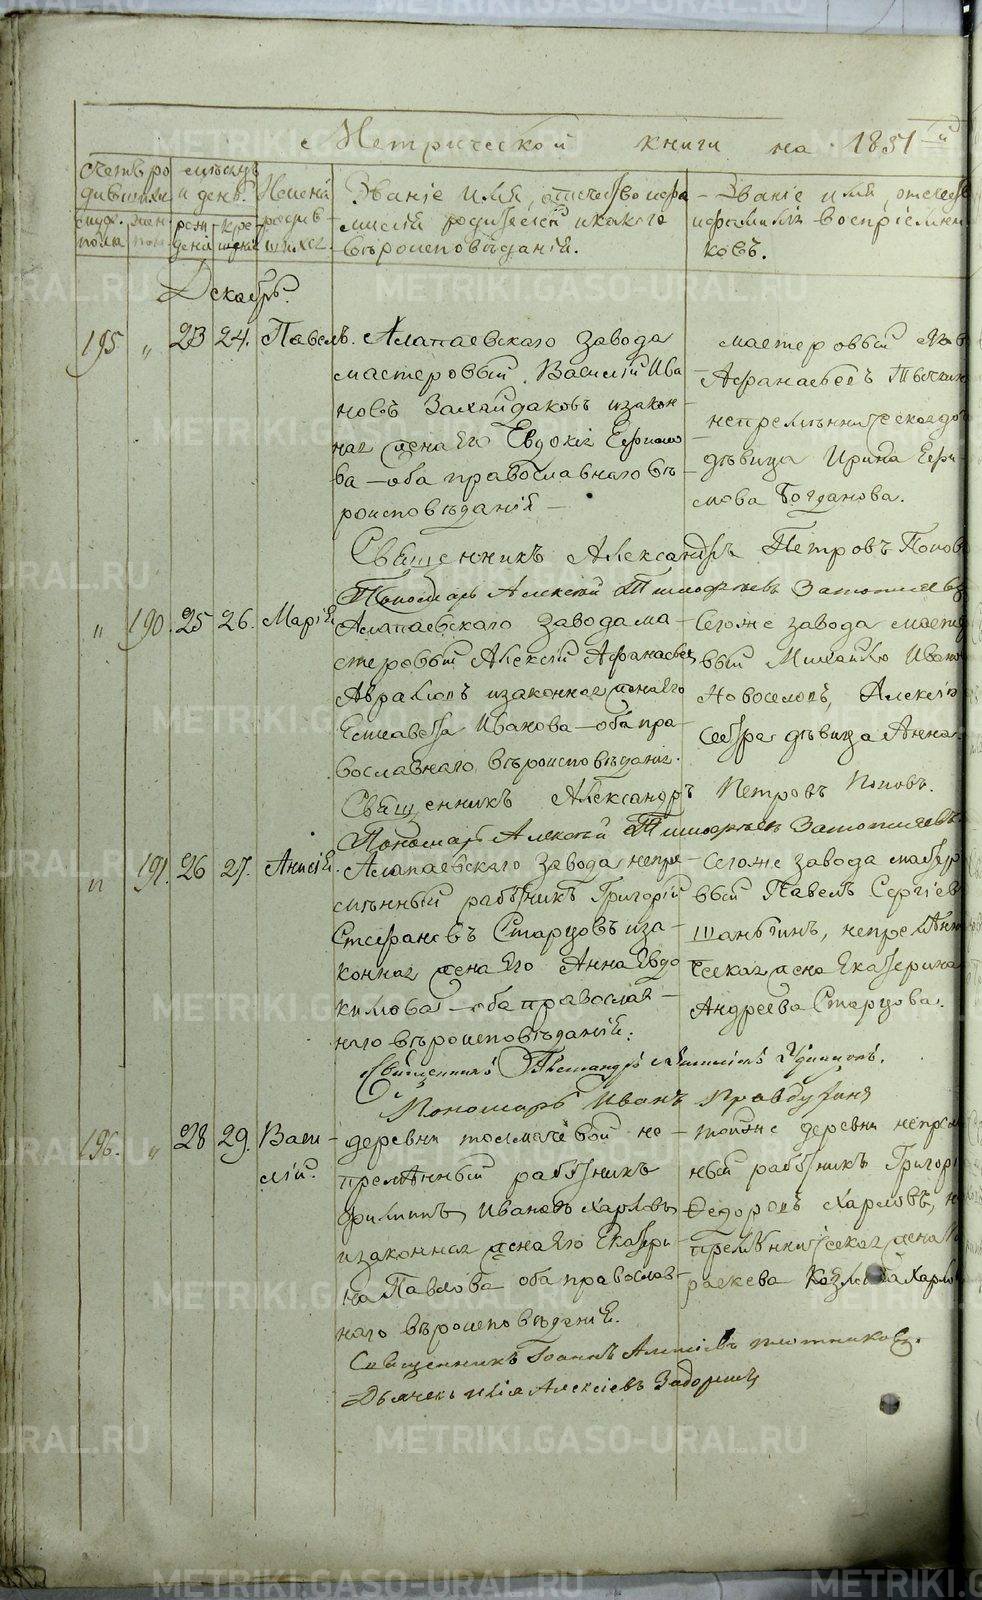 Метрической книги на 1851й
Счетъ родившихся
мѣсяцъ и день.
Имена родившихся.
Званіе имя, отечество и фамилія родителей и какого вѣроисповѣданій.
Званіе имя, отечество и фамилія воспріемниковъ.
муж. пола
жен. пол.
рожденія
крещенія
Декабрь.
195 „ 23 24. Павелъ.
Алапаевскаго завода
мастеровый Василій Ива
новъ Захайдаковъ и закон
ная жена Его Евдокія Ефимо
ва – оба православнаго вѣ
роисповѣданій –
мастеровый
Афанасьевъ
непремѣннической до
дѣвица Ирина Ефи-
мова Богданова.
Священникъ Александръ Петровъ Попов
Пономарь Алексѣй Тимофѣевъ Затопляев
„ 190. 25 26. Марія
Алапаевскаго завода ма-
стеровый Алексѣй Афанасьев
и законная жена Его
Елисавета Иванова – оба пра-
вославнаго вѣроисповѣданія.
Сегоже завода масте
вый Михайло Ивано
Новоселовъ, Алексѣя
дѣвица Анна
Священникъ Александръ Петровъ Поповъ.
Пономарь Алексѣй Тимофѣевъ Затопляевъ
„ 191. 26 27. Анисія.
Алапаевскаго завода непре
мѣнный работникъ Григорій
Стефановъ Старцовъ и за-
конная жена Его Анна Евдо
кимова – оба православ-
наго вѣроисповѣданій.
Сегоже завода мастер
вый Павелъ Сергѣев
Шаньгинъ, непремѣнни
ческая жена Екатерина
Андреева Старцова.
Священникъ Александръ Удинцовъ.
Пономарь Иванъ Правдухинъ
196. „ 28 29. Васи-
лій.
деревни Толмачевой не-
премѣнный работникъ
Филиппъ Ивановъ Харловъ
и законная жена Его Екатери-
на Павлова оба православ-
наго вѣроисповѣданія.
тойже деревни непрем
ный работникъ Григор
Федоровъ Харловъ, н
премѣнническая жена
раскева Козмина Харло
Священникъ Іоаннъ Алексіевъ Плотниковъ.
Дьячекъ Илія Алексіевъ Задоринъ
METRIKI.GASO-URAL.RU